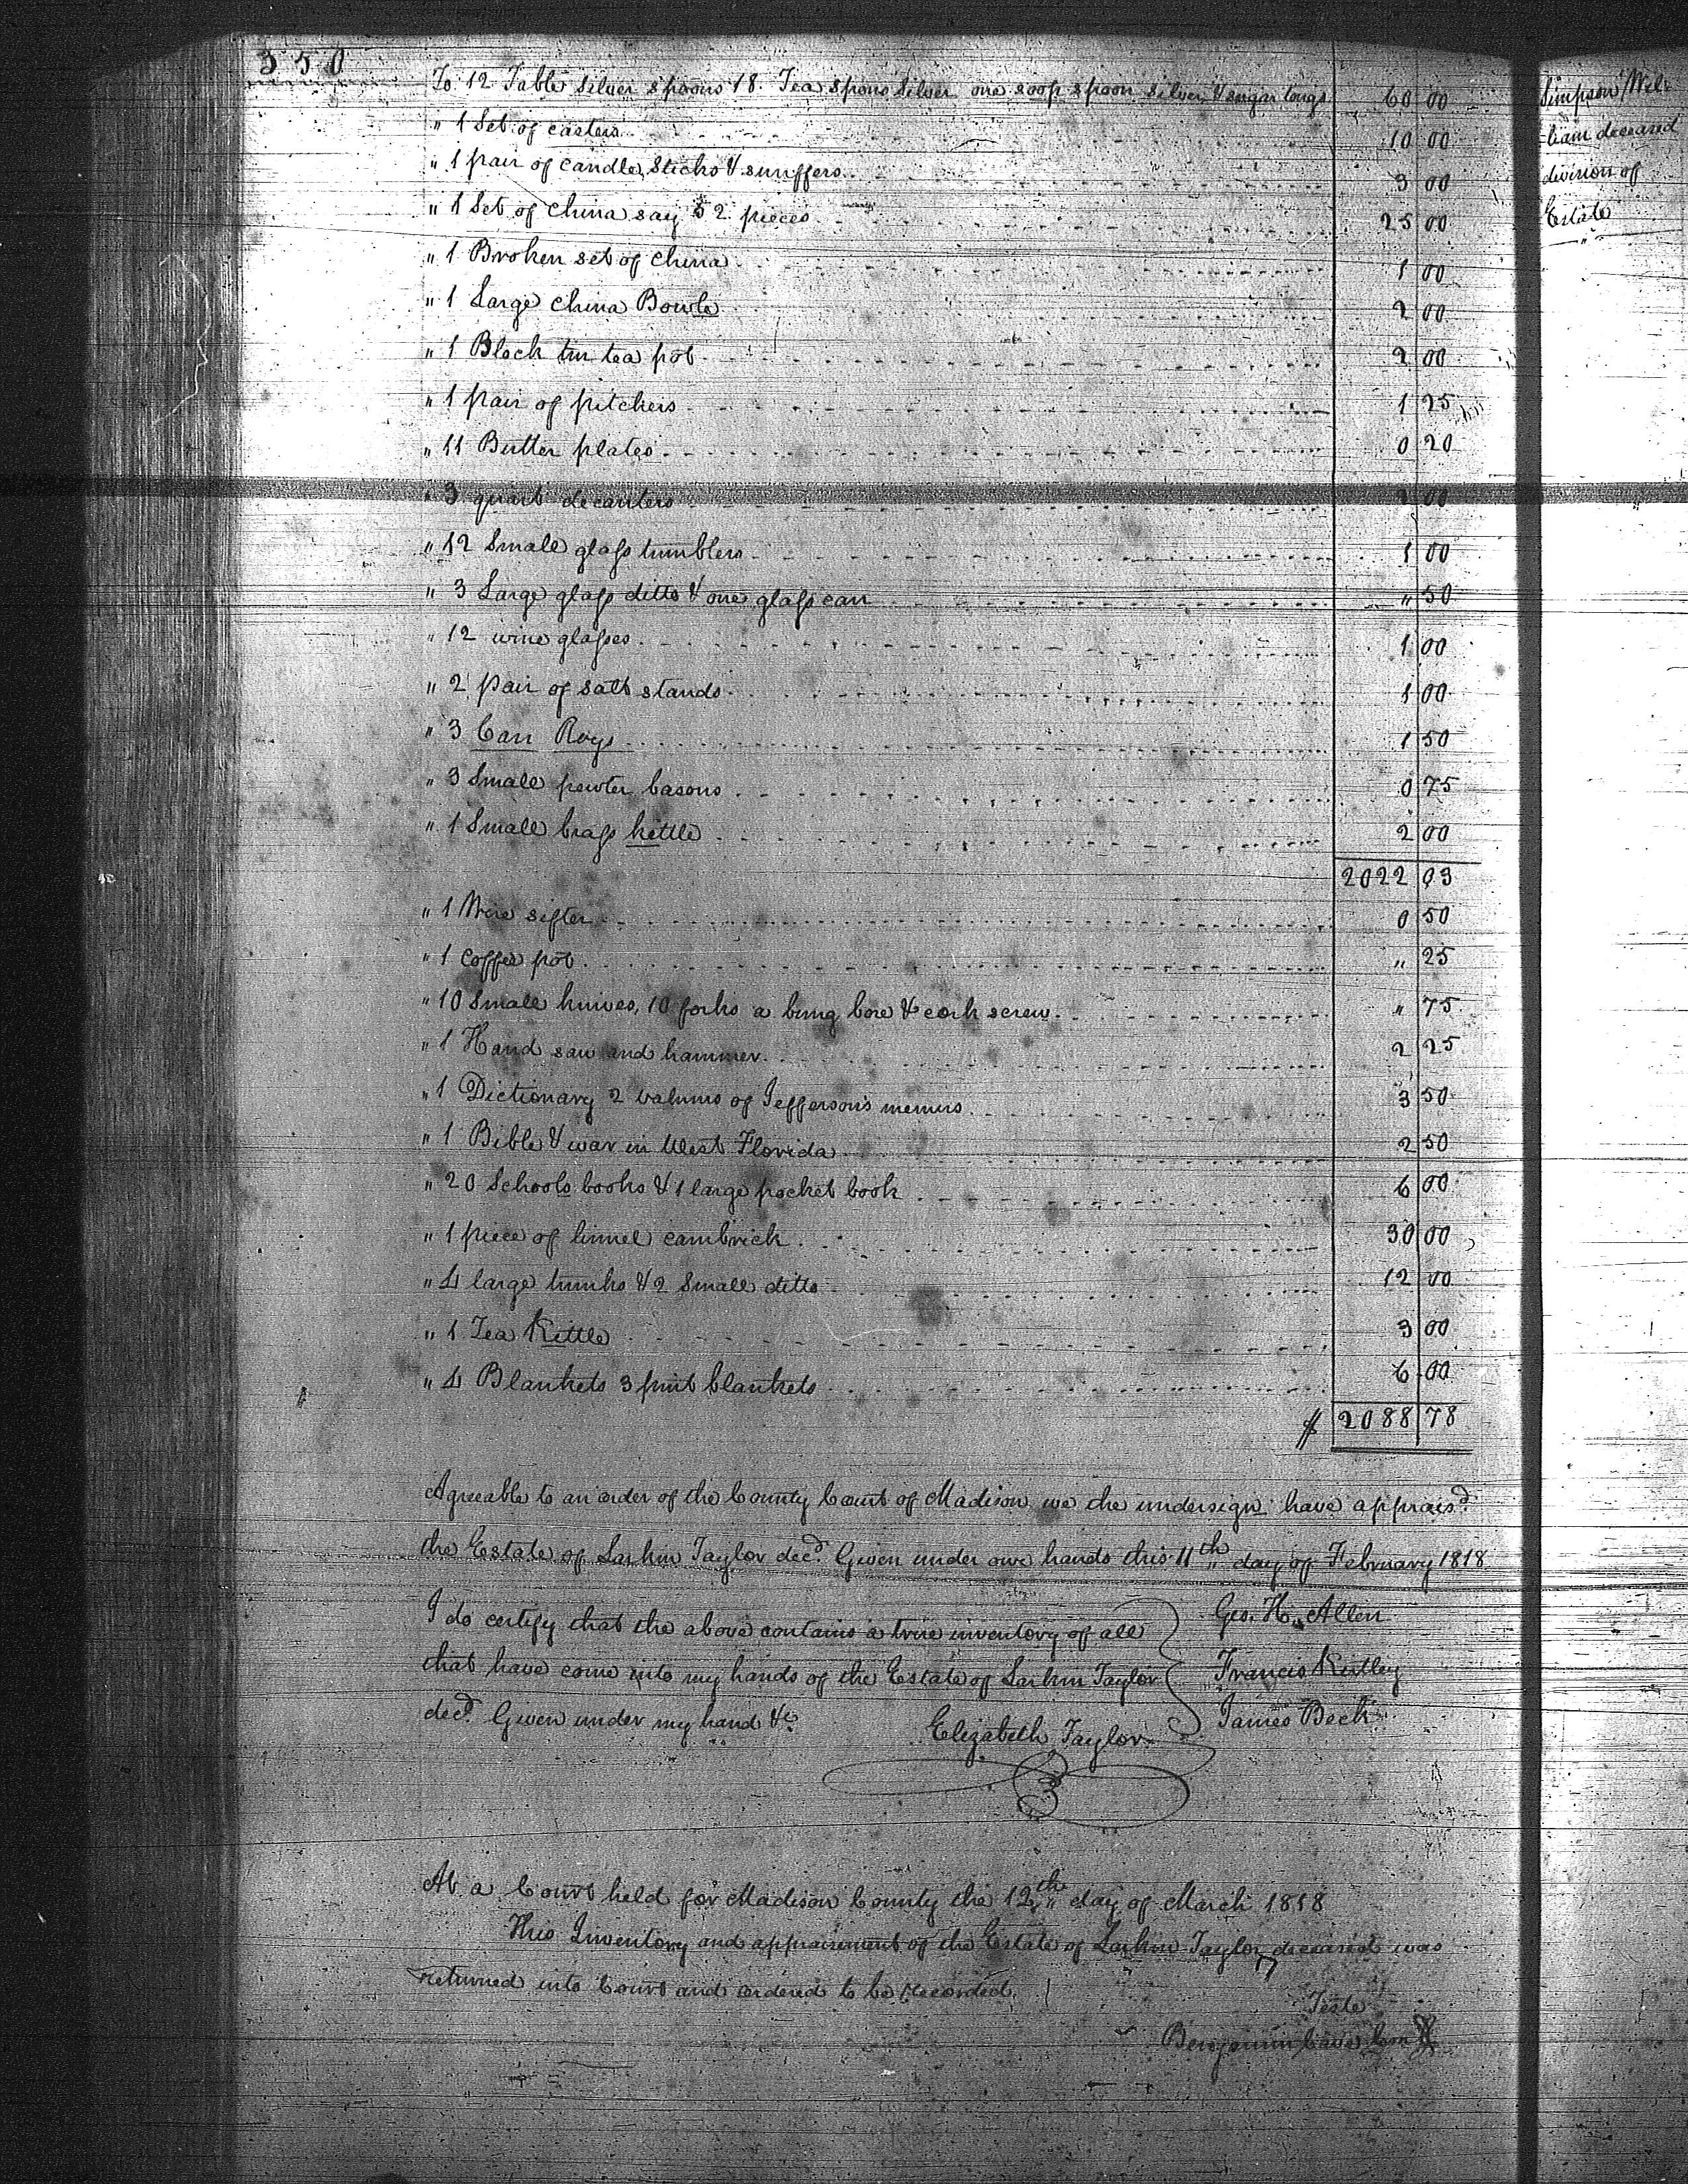 350
To 12 Table Silver spoons 18. Tea spons Silver one soop spoon silver & sugar tongs 60 00
" 1 Set of casters 10 00
" 1 pair of candle Sticks & snuffers 3 00
" 1 Set of china say 52 pieces 25 00
" 1 Broken set of china 1 00
" 1 Large china Bowle 2 00
" 1 Block tin tea pot 2 00
" 1 pair of pitchers 1 25
" 11 Butter plates 0 20
" 3 quart decanters 00
" 12 Small glass tumblers 1 00
" 3 Large glass ditto & one glass can " 50
" 12 wine glasses 1 00
" 2 pair of salt stands 1 00
" 3 Can 1 50
" 3 Small pewter basons 0 75
" 1 Small brass kettle 2 00
2022 03
" 1 Wire sifter 0 50
" 1 coffee pot " 25
" 10 Small knives, 10 forks a bung bore & cork screw " 75
" 1 Hand saw and hammer 2 25
" 1 Dictionary 2 valums of Jefferson's memirs 3 50
" 1 Bible & war in West Florida 2 50
" 20 Schools books & 1 large pocket book 6 00
" 1 piece of linnel cambrick 30 00
" 4 large trunks & 2 Small ditto 12 00
" 1 Tea Kettle 3 00
" 4 Blankets 3 pint blankets 6 00
$ 2088 78
Agreeable to an order of the County Court of Madison we the undersign have apprais.d
the Estate of Larkin Taylor dec.d Given under owr hands this 11th day of February 1818
I do certify that the above contains a true inventory of all
that have come into my hands of the Estate of Larkin Taylor
dec.d Given under my hand &c
Elizabeth Taylor
Geo. H. Allen
Francis Kirtley
James Beck
At a Court held for Madison County the 12th day of March 1818
This Inventory and appraisment of the Estate of Larkin Taylor deceased was
returned into Court and ordered to be Recorded.
Teste
Benjamin Cave
Simpson Wil-
-liam deceased
division of
Estate